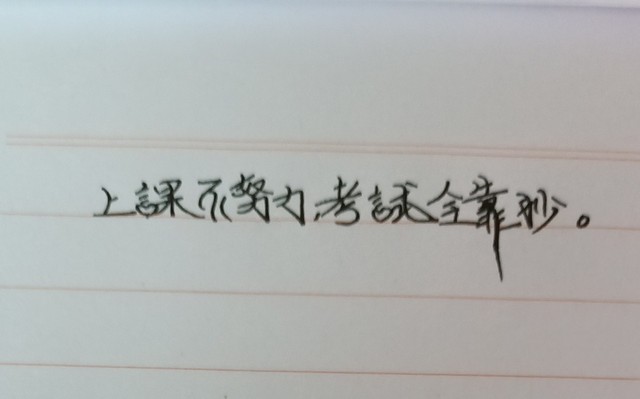 上課不努力,考試全靠抄。